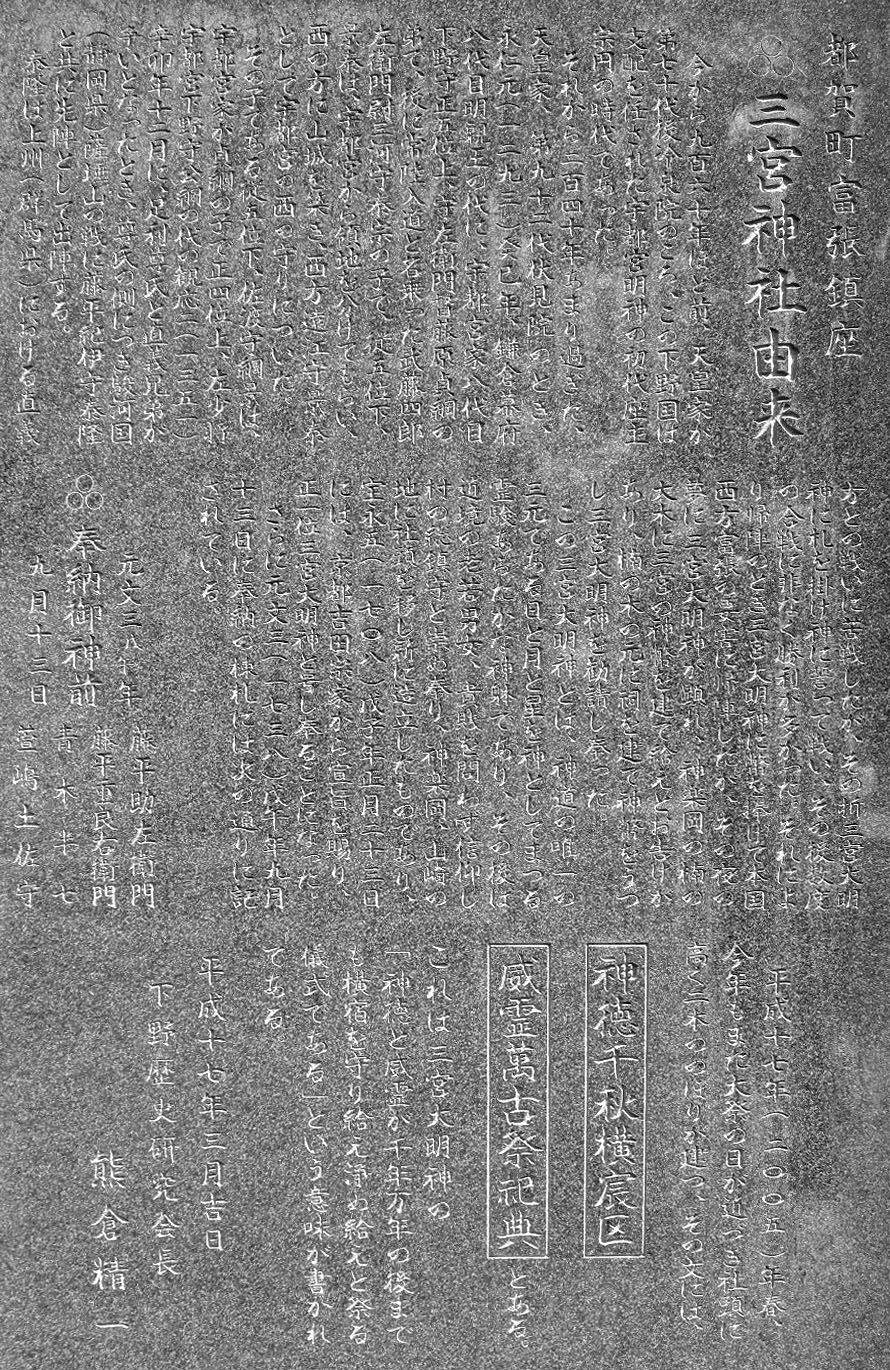 都賀町富張鎮座
三宮神社由来
今から九百六十年ほど前、天皇家か
第七十代後冷泉院のころ、この下野国は
支配を任された宇都宮明神の初代座主
宗円の時代であった。
それから二百四十年あまり過ぎた、
天皇家、第九十二代伏見院のとき、
永仁元(一二九三)癸巳年、鎌倉幕府
八代目明親王の代に、宇都宮家八代目
下野守正五位上、守左衛門督藤原貞綱の
弟で、後に常陸入道と名乗った武藤四郎
左衛門尉三河守泰宗の子で、従五位下、
景泰は、宇都宮から領地を分けてもらい、
西の方に山城を築き、西方遠江守景泰
として宇都宮の西の守りについた。
その子である従五位下、佐渡守綱景は、
宇都宮家が貞綱の子で正四位上、左少将
宇都宮下野守公綱の代の観応二(一三五一)
辛卯年十二月に、足利尊氏と直義兄弟が
争いとなったとき、尊氏の側につき駿河国
(静岡県)薩埵山の戦に藤平紀伊守泰隆
と共に先陣として出陣する。
泰隆は上州(群馬県)における直義
方との戦いに苦戦したが、その折三宮大明
神に札を掛け神に誓って戦い、その後数度
の合戦に非なく勝利が多かった。それによ
り帰陣のとき三宮大明神に幣を捧げて本国
西方富張の要害に帰陣したが、その夜の
夢に三宮大明神が顕れ、神楽岡の楠の
大木に三宮の神幣を建て給えとお告げが
あり、楠の木の元に祠を建て神幣をうつ
し三宮大明神を勧請し奉った。
この三宮大明神とは、神道の唯一の
三元である日と月と星を神としてまつる
霊験あらたかな神蛛であり、その後は
近境の老若男女、貴賎を問わず信仰し
村の総鎮守と崇め奉り、神楽岡、山崎の
地に社頭を移し新に造立したものであり、
宝永五(一七〇八)戊子年正月二十三日
には、京都吉田宗家から宣旨を賜り、
正一位三宮大明神と号し奉ることになった。
さらに元文三(一七三八)戊午年九月
十三日に奉納の棟札には次の通りに記
されている。
元文三戊午年
奉納御神前
九月十三日
藤平助左衛門
藤平市良右衛門
青木半七
萱嶋土佐守
平成十七年(二〇〇五)年春、
今年もまた大祭の日が近づき社頭に
高く二本ののぼりが建つ、その文には、
神徳千秋横宸区
威霊萬古祭祀典とある。
これは三宮大明神の
「神徳と威霊が千年万年の後まで
も横宿を守り給え浄め給えと祭る
儀式である」という意味が書かれ
てある。
平成十七年三月吉日
下野歴史研究会長
熊倉精一